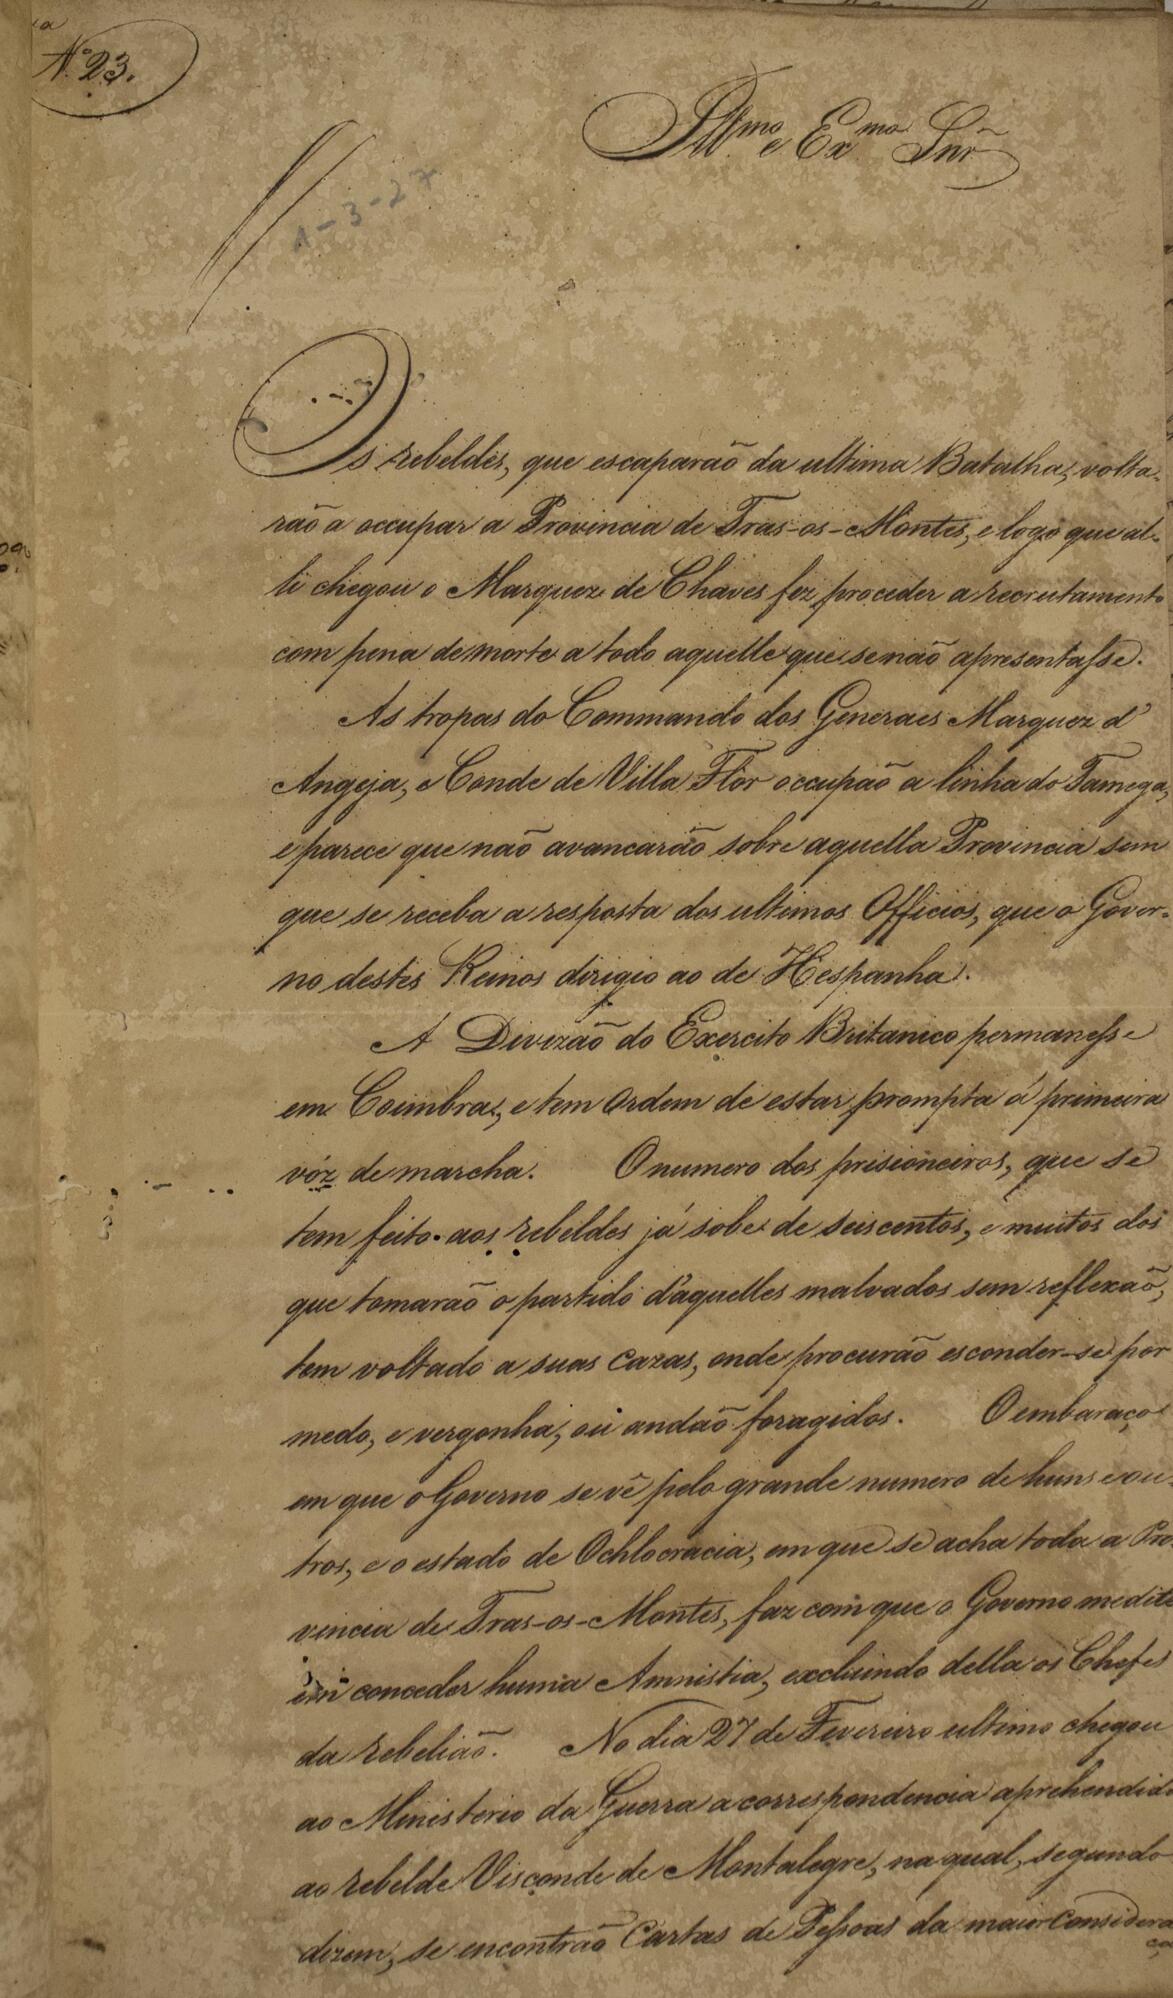 Nº 23.
Illmo e Exmo Snr
1-3-27
Os rebeldes, que escaparão da ultima Batalha, volta-
rão a occupar a Provincia de Tras-os-Montes, e logo que al-
li chegou o Marquez de Chaves fez proceder a recrutamento
com pena de morte a todo aquelle que se não apresentasse.
As tropas do Commando dos Generaes Marquez d'
Angeja, e Conde de Villa Flor occupão a linha do Tamega,
e parece que não avancarão sobre aquella Provincia sem
que se receba a resposta dos ultimos Officios, que o Gover-
no destes Reinos dirigio ao de Hespanha.
A Divizão do Exercito Britanico permanesse
em Coimbra, e tem ordem de estar prompta á primeira
vóz de marcha. O numero dos prisioneiros, que se
tem feito aos rebeldes já sobe de seiscentos, e muitos dos
que tomarão o partido d'aquelles malvados sem reflexão,
tem voltado a suas cazas, onde procurão esconder-se por
medo, e vergonha, ou andão foragidos. O embaraço
em que o Governo se vê pelo grande numero de huns e ou-
tros, e o estado de Ochlocracia, em que se acha toda a Pro-
vincia de Tras-os-Montes, faz com que o Governo medite
em conceder huma Amnistia, excluindo della os Chefes
da rebelião. No dia 27 de Fevereiro ultimo chegou
ao Ministerio da Guerra a correspondencia aprehendida
ao rebelde Visconde de Montalegre, na qual, segundo
dizem, se encontrão Cartas de Pessoas da maior Considera
ça